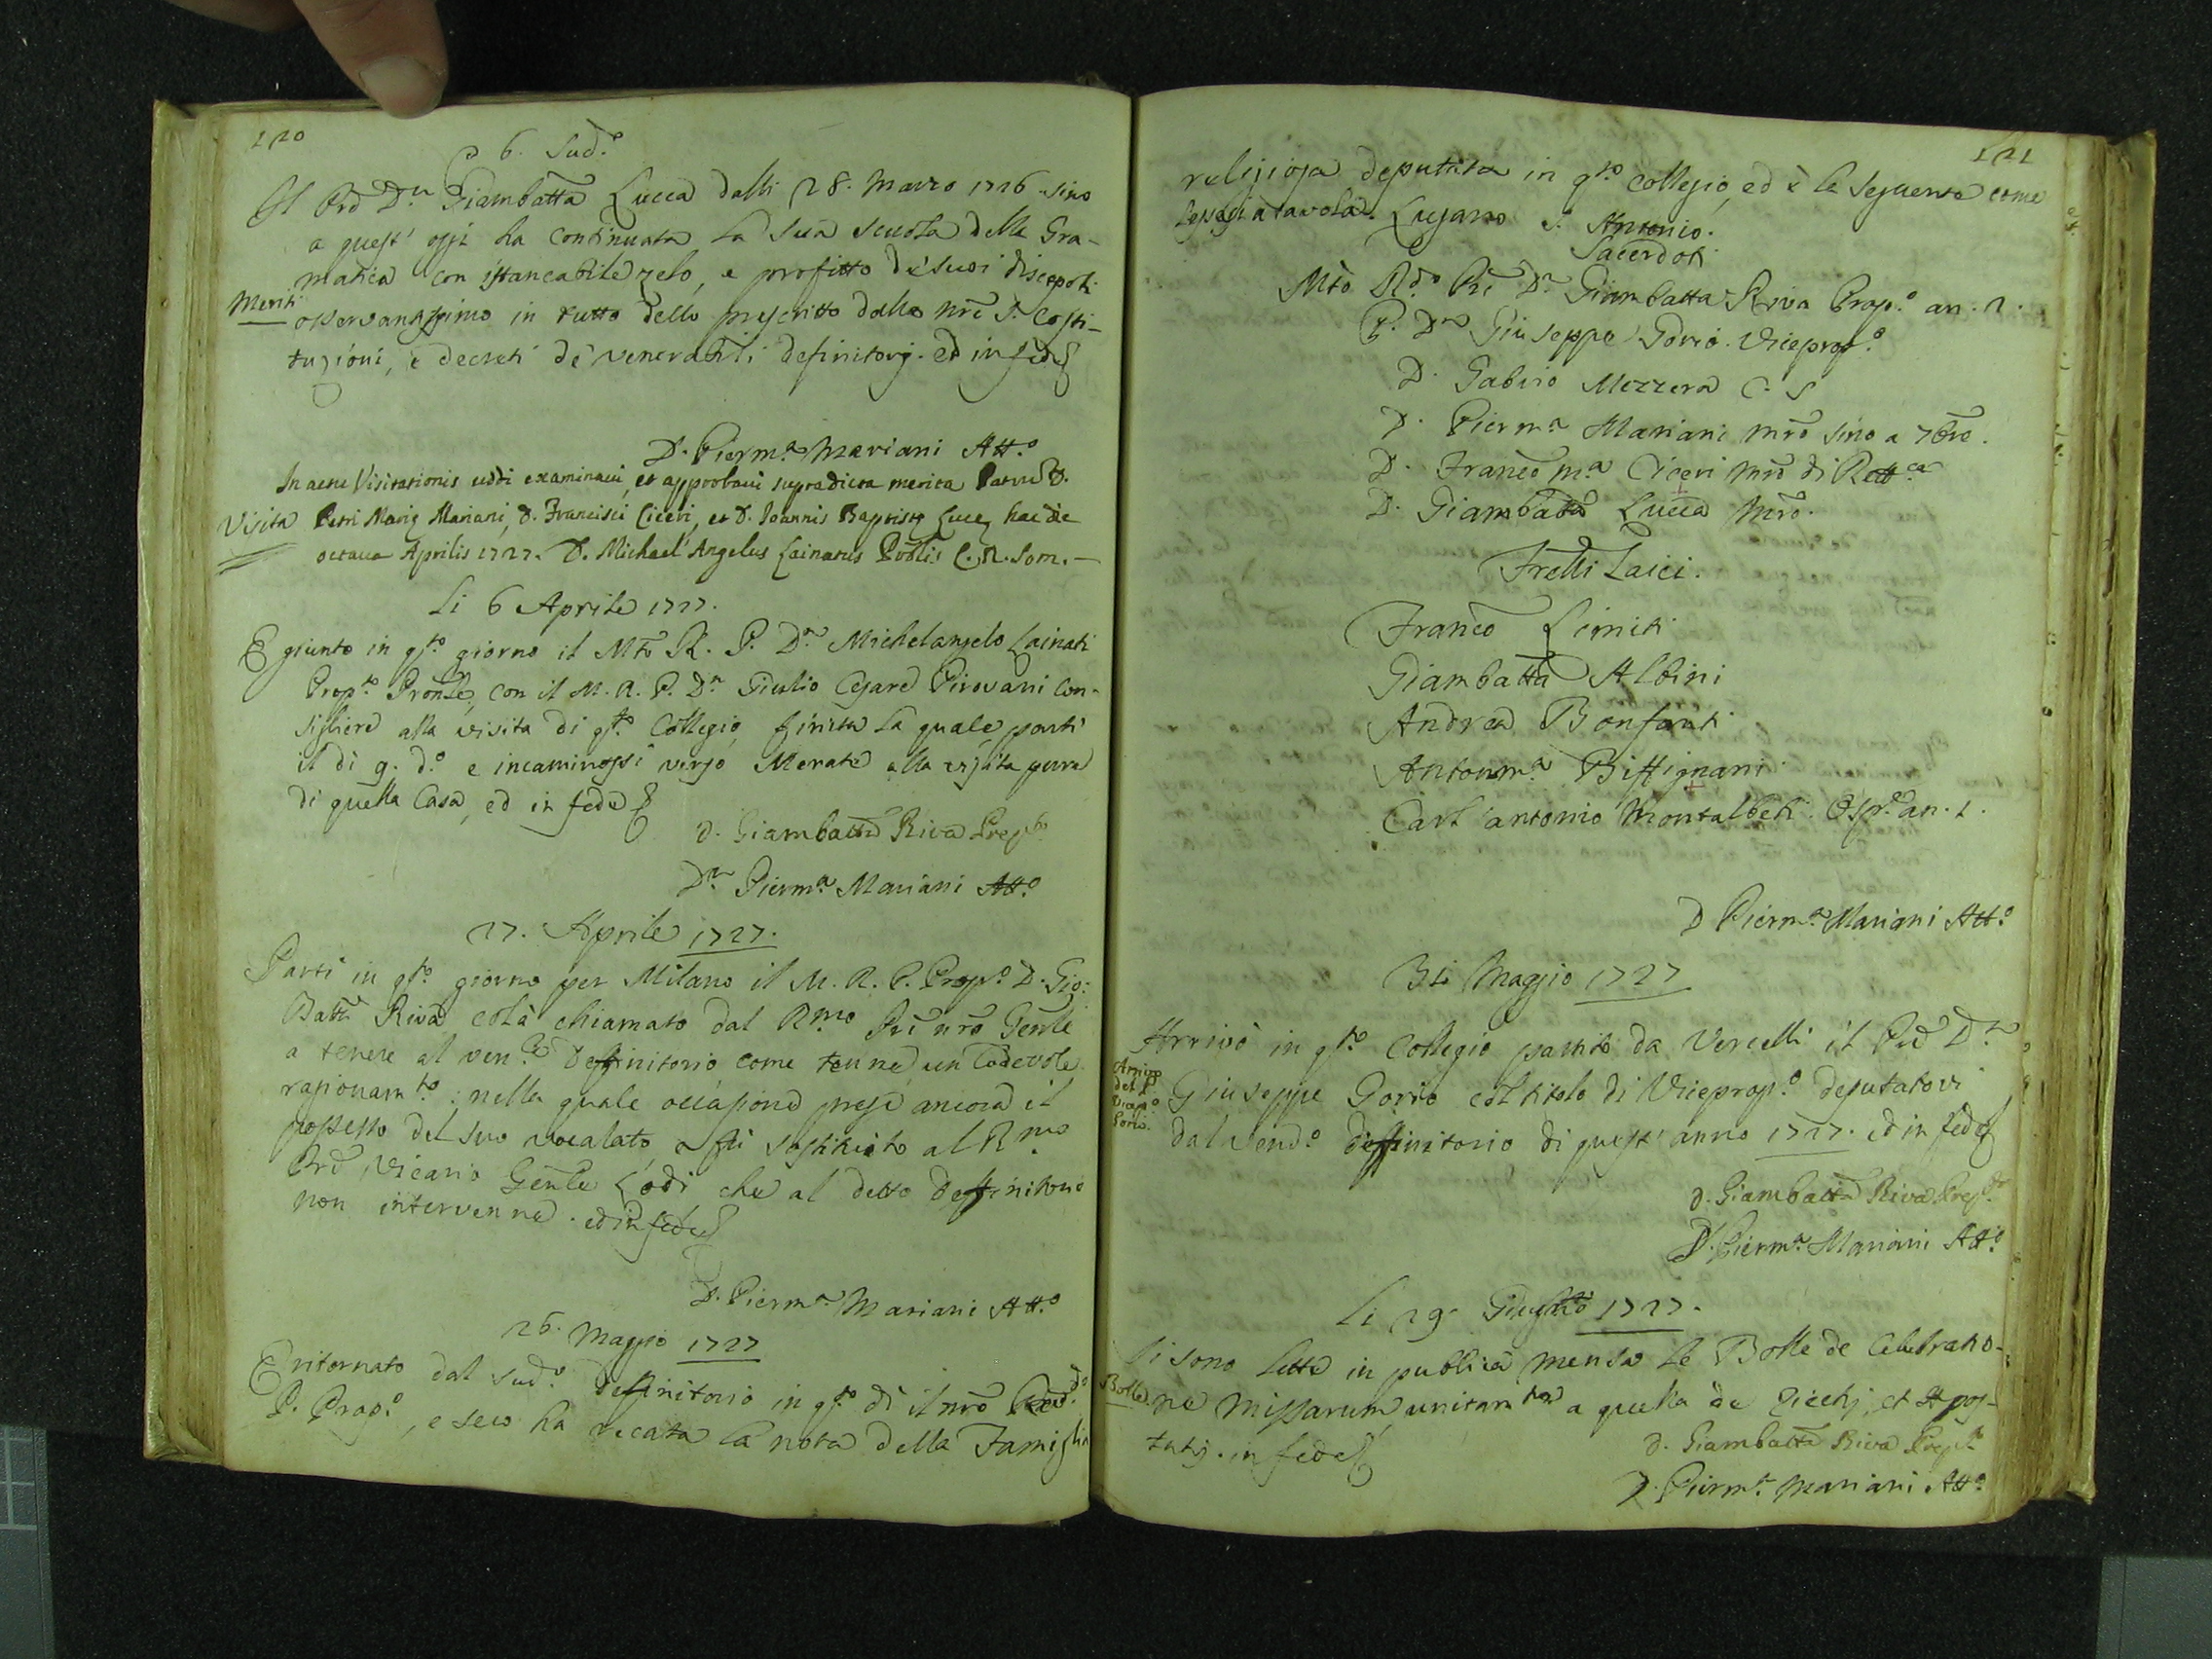 120
6. Sud.o
Il Pre D.n Giambatta Lucca dalli 28. Marzo 1726 sino
a quest' oggi ha continuata la sua scuola della Gra-
matica con istancabile zelo, e profitto de' suoi discepoli
Meriti
osservantissimo in tutto dello prescritto dalle nre S. Costi-
tuzioni, e decreti de' venerabili definitorj. ed in fede
D. Pierm.a Mariani Att.o
In actu Visitationis uidi examinaui, et approbaui supradicta merita Patru D.
Visita Petri Marię Mariani, D. Francisci Ciceri, et D. Joannis Baptistę Lucę hac die
octaua Aprilis 1727. D. Michael Angelus Lainatus Pvölis C. R. Som.
Li 6 Aprile 1727.
E giunto in qto giorno il Mto R. P. D.n Michelangelo Lainati
Prep.to Pronle, con il M. R. P. D.n Giulio Cesare Pirovani Con-
sigliere alla visita di qto Collegio, finita la quale partì
il dì 9. d.o e incaminossi verso Merate alla visita pure
di quella Casa, ed in fede
D. Giambatta Riva Prep.to
D.n Pierm.a Mariani Att.o
27. Aprile 1727.
Partì in qto giorno per Milano il M. R. P. Prop.o D. Gio:
Batta Riva colà chiamato dal Rmo Pre nro Genle
a tenere al ven.le Deffinitorio come tenne un lodevole
ragionam.to; nella quale occasione prese ancora il
possesso del suo vocalato, e fù sostituito al Rmo
Pre Vicario Genle Lodi che al detto Deffinitorio
non intervenne. ed in fede
D. Pierm.a Mariani Att.o
26. Maggio 1727
E ritornato dal sud.o Deffinitorio in qto dì il nro
P. Prop.o, e seco ha recata la nota della Famiglia
121
religiosa deputata in qto Collegio, ed è la seguente come
leggesi a tavola. Lugano S. Antonio.
Sacerdoti
Mto Rdo Pre D.n Giambatta Riva Prop.o an. 2.
P. D.n Giuseppe Gorio. Viceprop.o
D. Gabrio Mezzera C. S
D. Pierm.a Mariani mro sino a 7bre.
D. Franco m.a Ciceri mro di Rett.ca
D. Giambatta Lucca Mro.
Frelli Laici.
Franco Limiti
Giambatta Albini
Andrea Bonfanti
Antonm.a Biffignani
Carl' antonio Montalbeti. Osp.e an. 1.
D Pierm.a Mariani Att.o
31 Maggio 1727
Arrivò in qto Collegio partito da Vercelli il Pre D.n
Arrivo
del P.
D. Gios.
Gorio.
Giuseppe Gorio col titolo di Viceprop.o deputatovi
dal vend.o deffinitorio di quest' anno 1727. ed in fede
D. Giambatta Riva Prep.to
D. Pierm.a Mariani Att.o
Li 29. Giugno 1727.
Si sono lette in publica mensa le Bolle de Celebratio-
Bolle
ne Missarum unitam.te a quella de Ejectis, et Apos-
tatis. in fede
D. Giambatta Riva Prep.to
D. Pierm.a Mariani Att.o